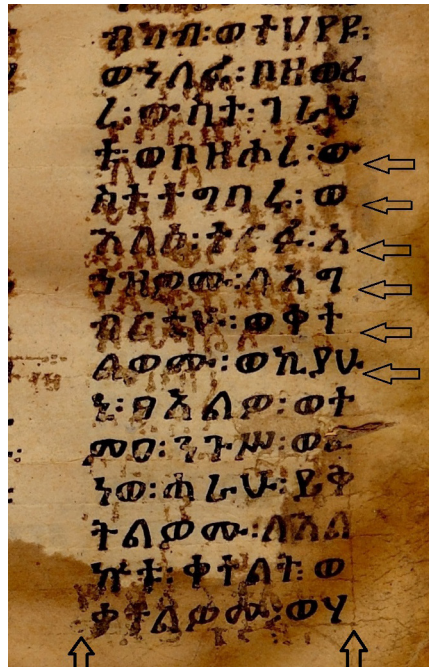 ብካብ፡ወተሀየዩ፡
ወኀለፉ፡ቦዘወፈ
ረ፡ውስተ፡ገራህ
ቱ፡ወቦዘሖረ፡ው
ስተተግባሩ፡ወ
እለሰ፡ተርፉ፡አ
ኀዝዎሙ፡ለአግ
ብርቲሁ፡ወቀተ
ልዎሙ፡ወኪያሁ
ኒ፡ፀአልዎ፡ወተ
መዐ፡ንጉሥ፡ወፈ
ነወ፡ሐራሁ፡ይቅ
ትልዎሙ፡ለእል
ኵቱ፡ቀተልት፡ወ
ቀተልዎሙ፡ወሃ